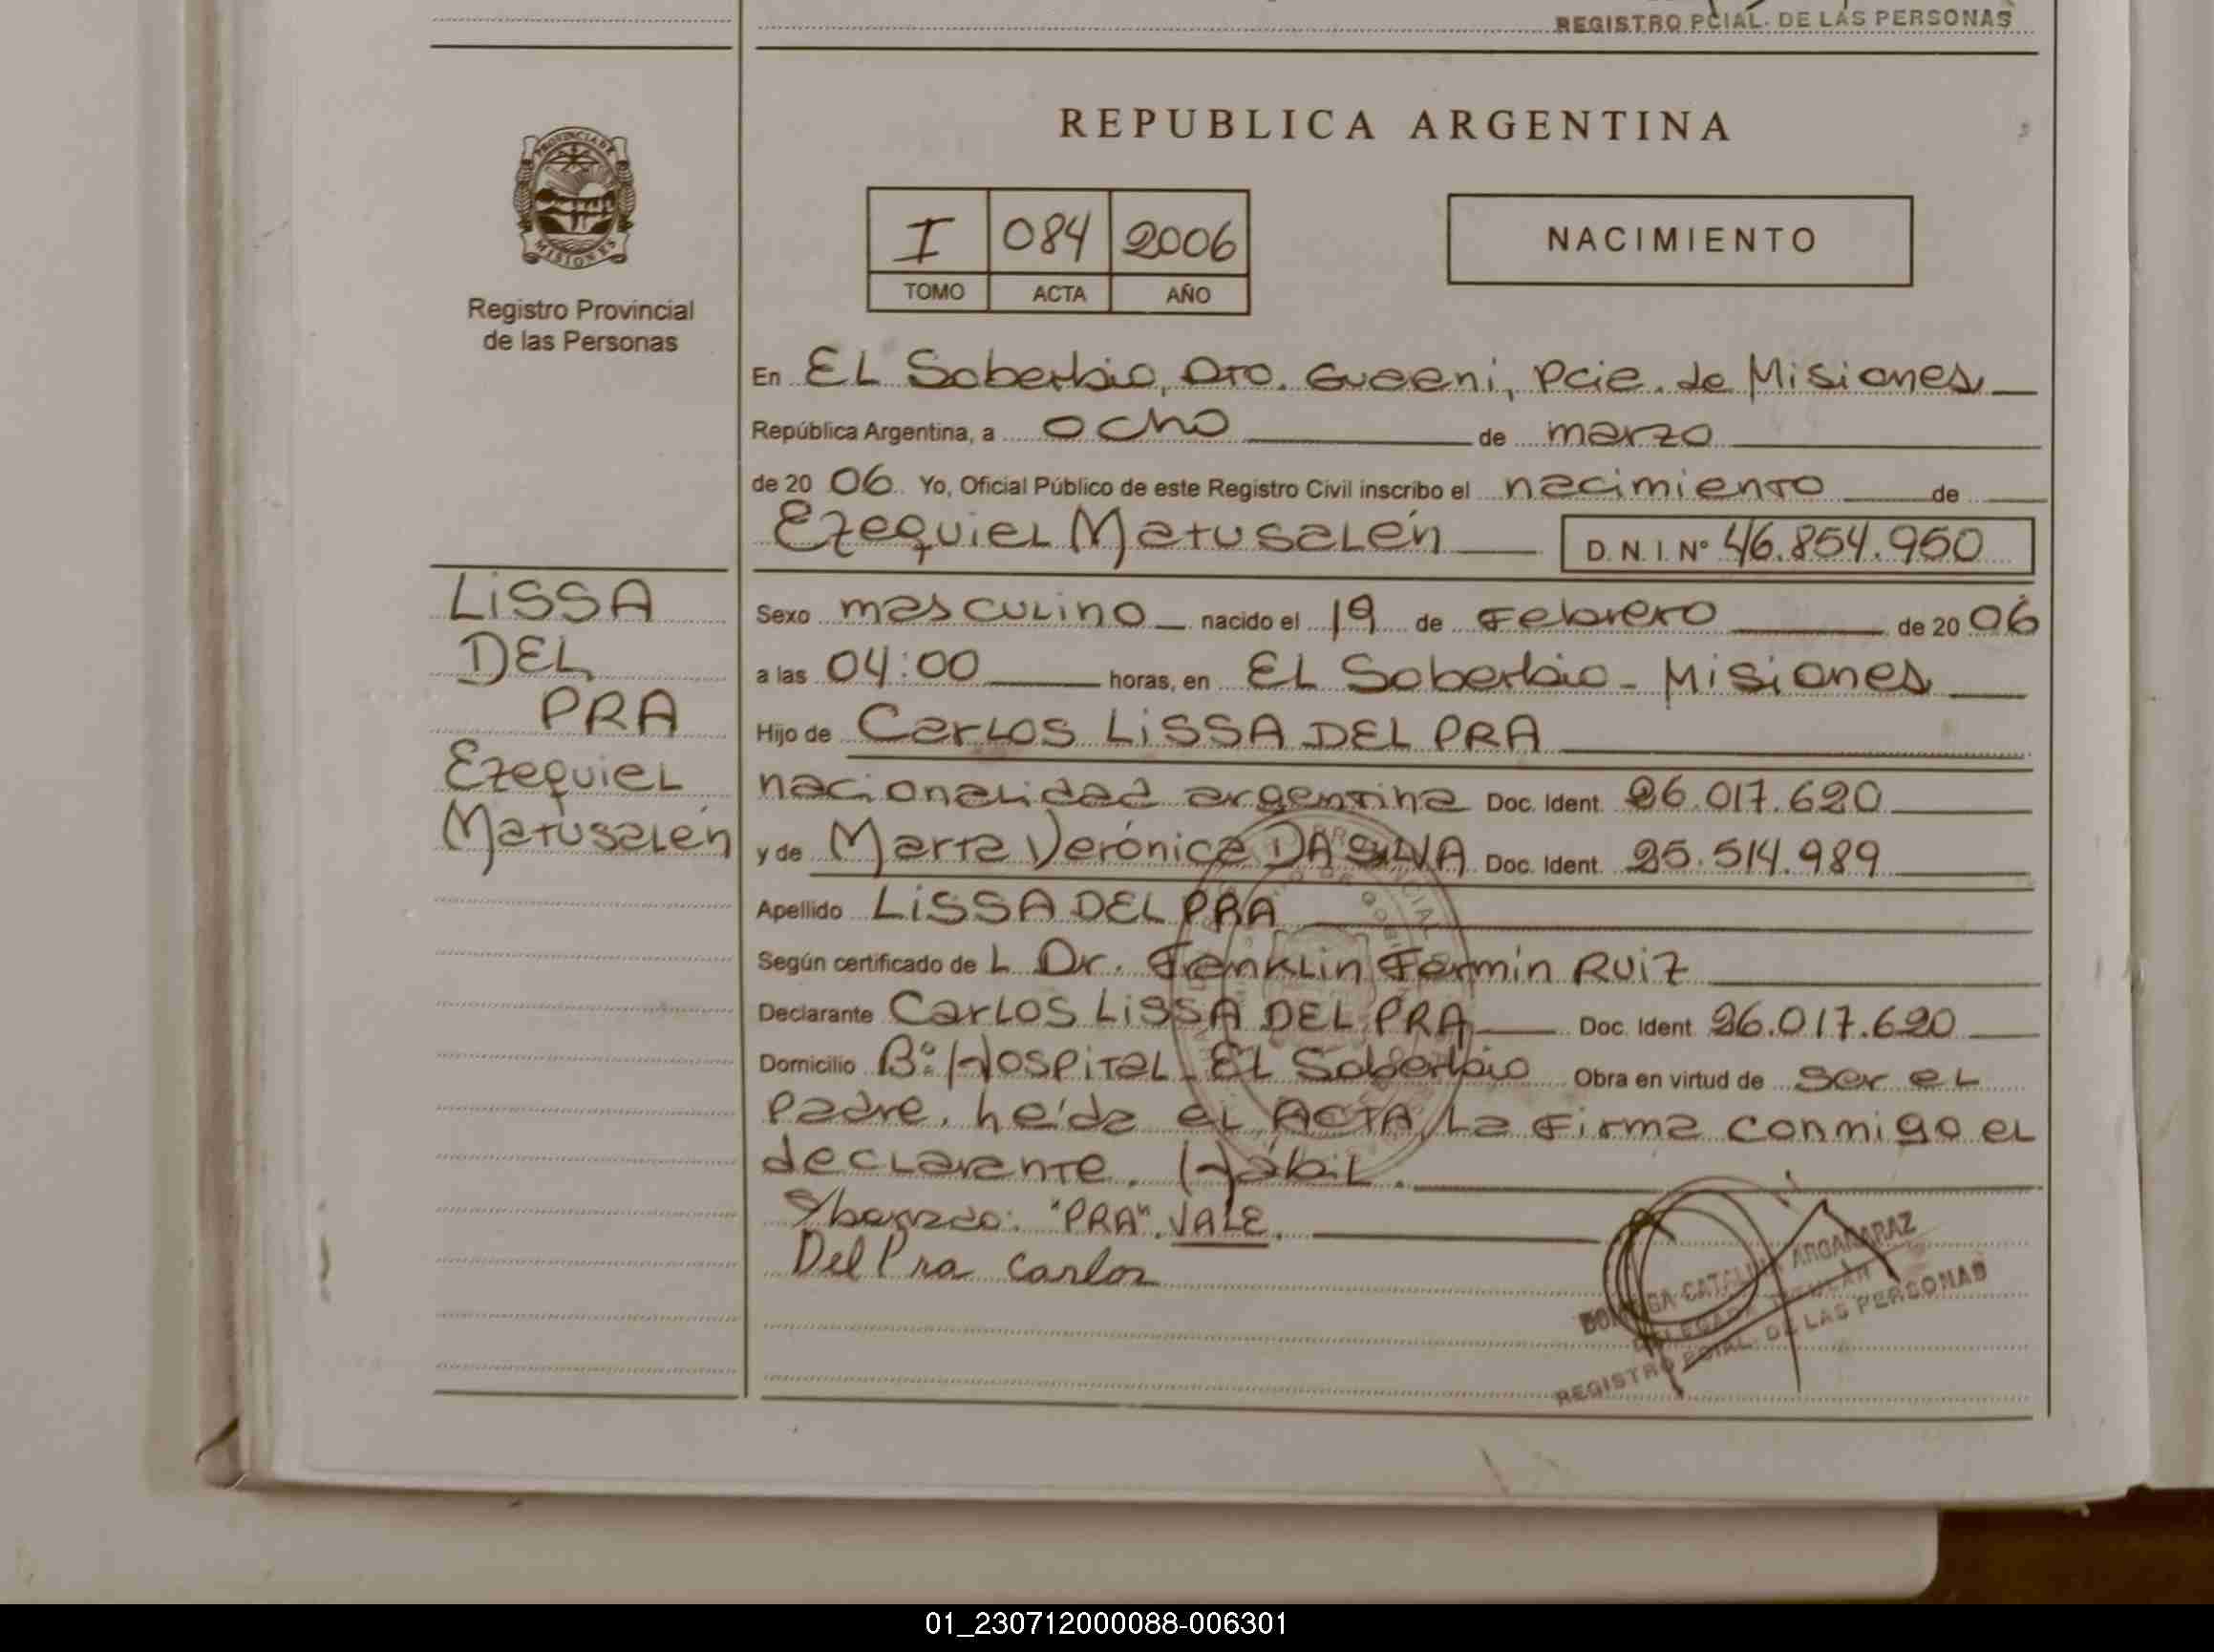 REGISTRO PCIAL. DE LAS PERSONAS
PROVINCIA DE
MISIONES
Registro Provincial
de las Personas
REPUBLICA ARGENTINA
I 084 2006
TOMO ACTA AÑO
NACIMIENTO
En EL Soberbio, Dto. Guaraní, Pcia. de Misiones
República Argentina, a ocho de marzo
de 20 06 Yo, Oficial Público de este Registro Civil inscribo el nacimiento de
Ezequiel Matusalén D. N. I. Nº 46.854.950
LISSA
DEL
PRA
Ezequiel
Matusalén
Sexo masculino nacido el 19 de Febrero de 20 06
a las 04:00 horas, en EL Soberbio - Misiones
Hijo de Carlos LISSA DEL PRA
nacionalidad argentina Doc. Ident. 26.017.620
y de Marta Verónica DA SILVA Doc. Ident. 25.514.989
Apellido LISSA DEL PRA
Según certificado de L Dr. Franklin Fermín Ruiz
Declarante Carlos LISSA DEL PRA Doc. Ident. 26.017.620
Domicilio Bº: Hospital - EL Soberbio Obra en virtud de ser el
Padre. Leída el ACTA, La Firma conmigo el
declarante. Hábil.
S/borrado: "PRA". VALE.
Del Pra Carlos
CATALINA ARGAÑARAZ
DELEGADA TITULAR
REGISTRO PCIAL. DE LAS PERSONAS
01_230712000088-006301